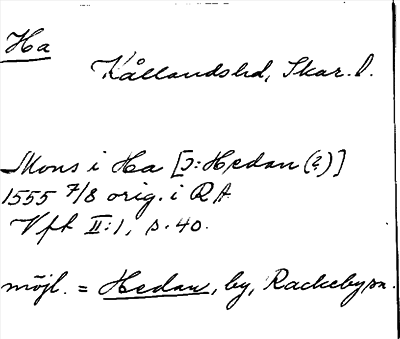 Ha
Kållandshd, Skar. l.
Mons i Ha [ɔ: Hedan (?)]
1555 7/8 orig. i RA
Vfr II:1, s. 40.
möjl. = Hedan, by, Rackeby sn.